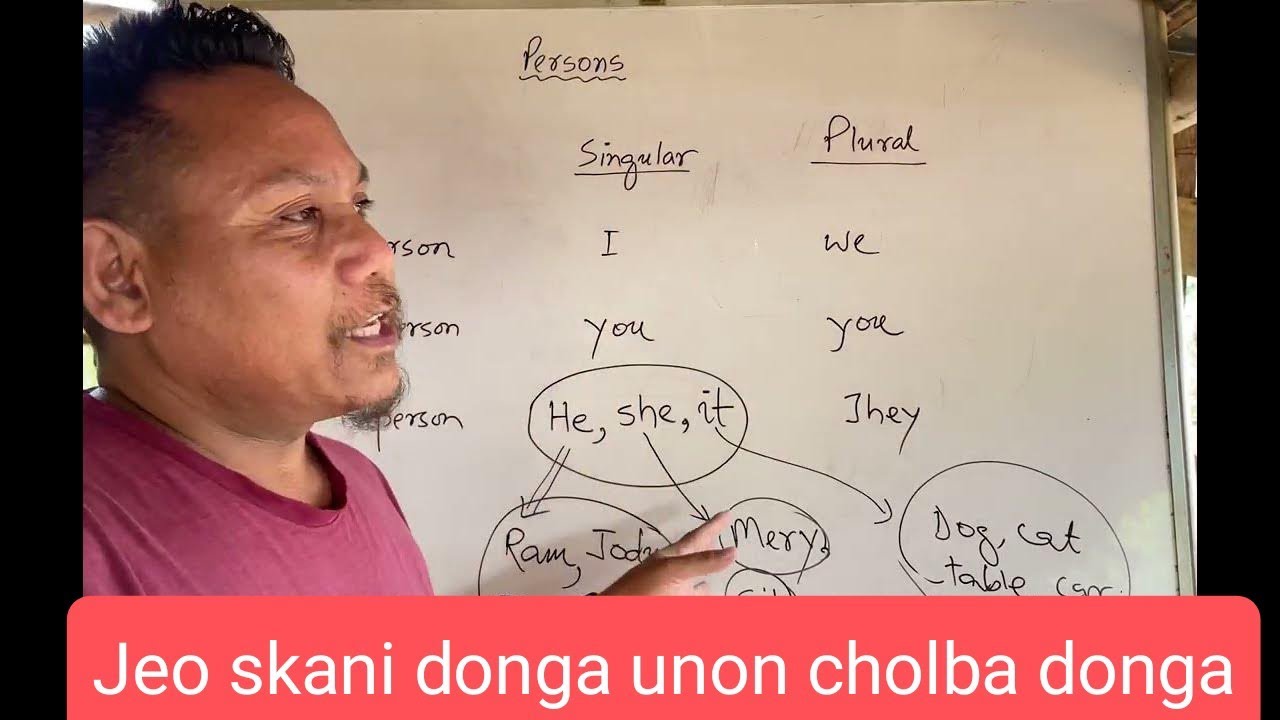 Persons
Singular Plural
rson I We
erson you you
person He, she, it They
Ram, Jodu Mery
Dog, cat
table car
Jeo skani donga unon cholba donga